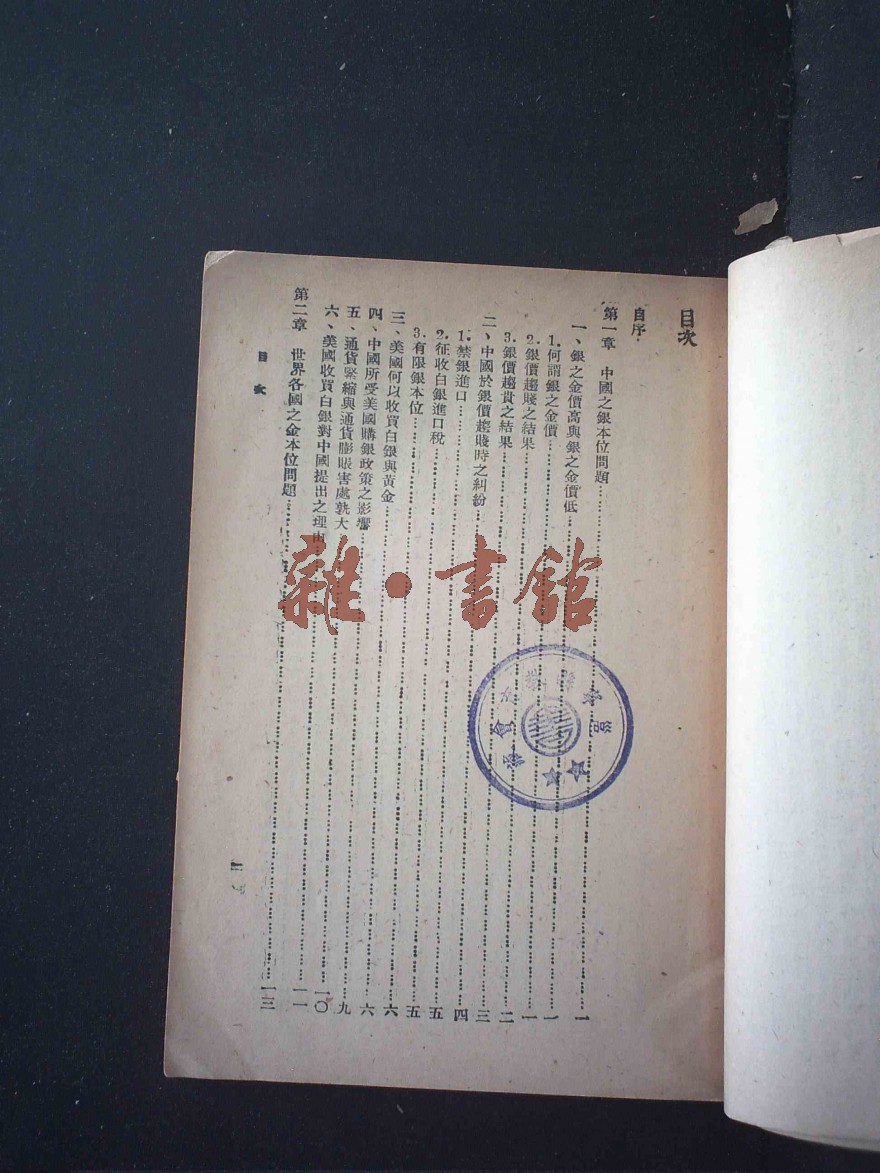 目次
自序
第一章 中國之銀本位問題……一
一、銀之金價高與銀之金價低……一
1.何謂銀之金價……一
2.銀價趨賤之結果……二
3.銀價趨貴之結果……三
二、中國於銀價趨賤時之糾紛……四
1.禁銀進口……五
2.征收白銀進口稅……五
3.有限銀本位……六
三、美國何以收買白銀與黃金……六
四、中國所受美國購銀政策之影響……九
五、通貨緊縮與通貨膨脹害處孰大……一〇
六、美國收買白銀對中國提出之理由……一一
第二章 世界各國之金本位問題……一三
目 次
雜·書館